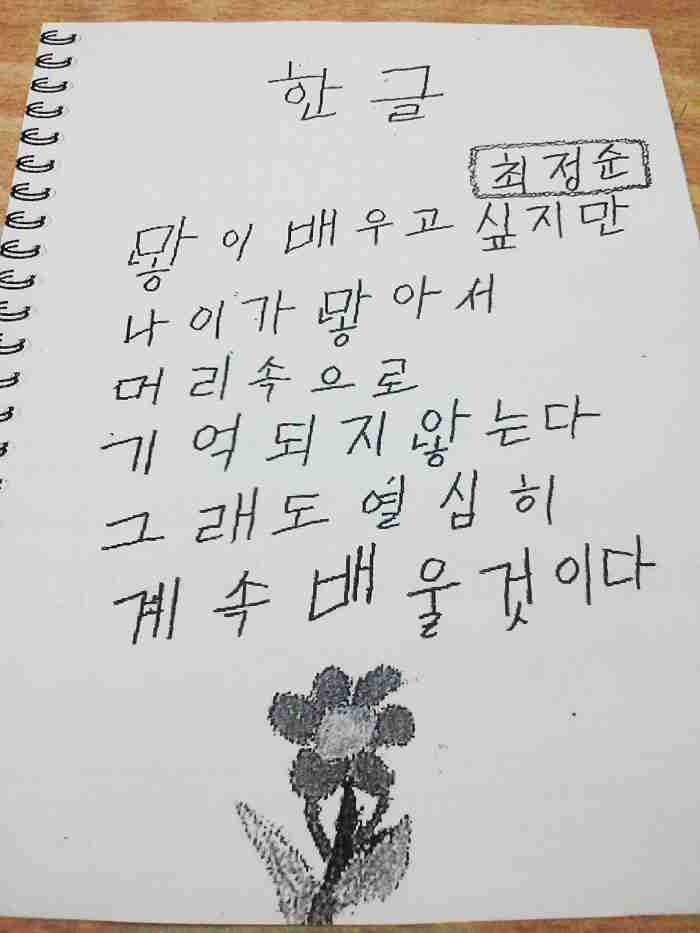 한글
최정순
많이 배우고 싶지만
나이가 많아서
머리속으로
기억되지 않는다
그래도 열심히
계속 배울 것이다